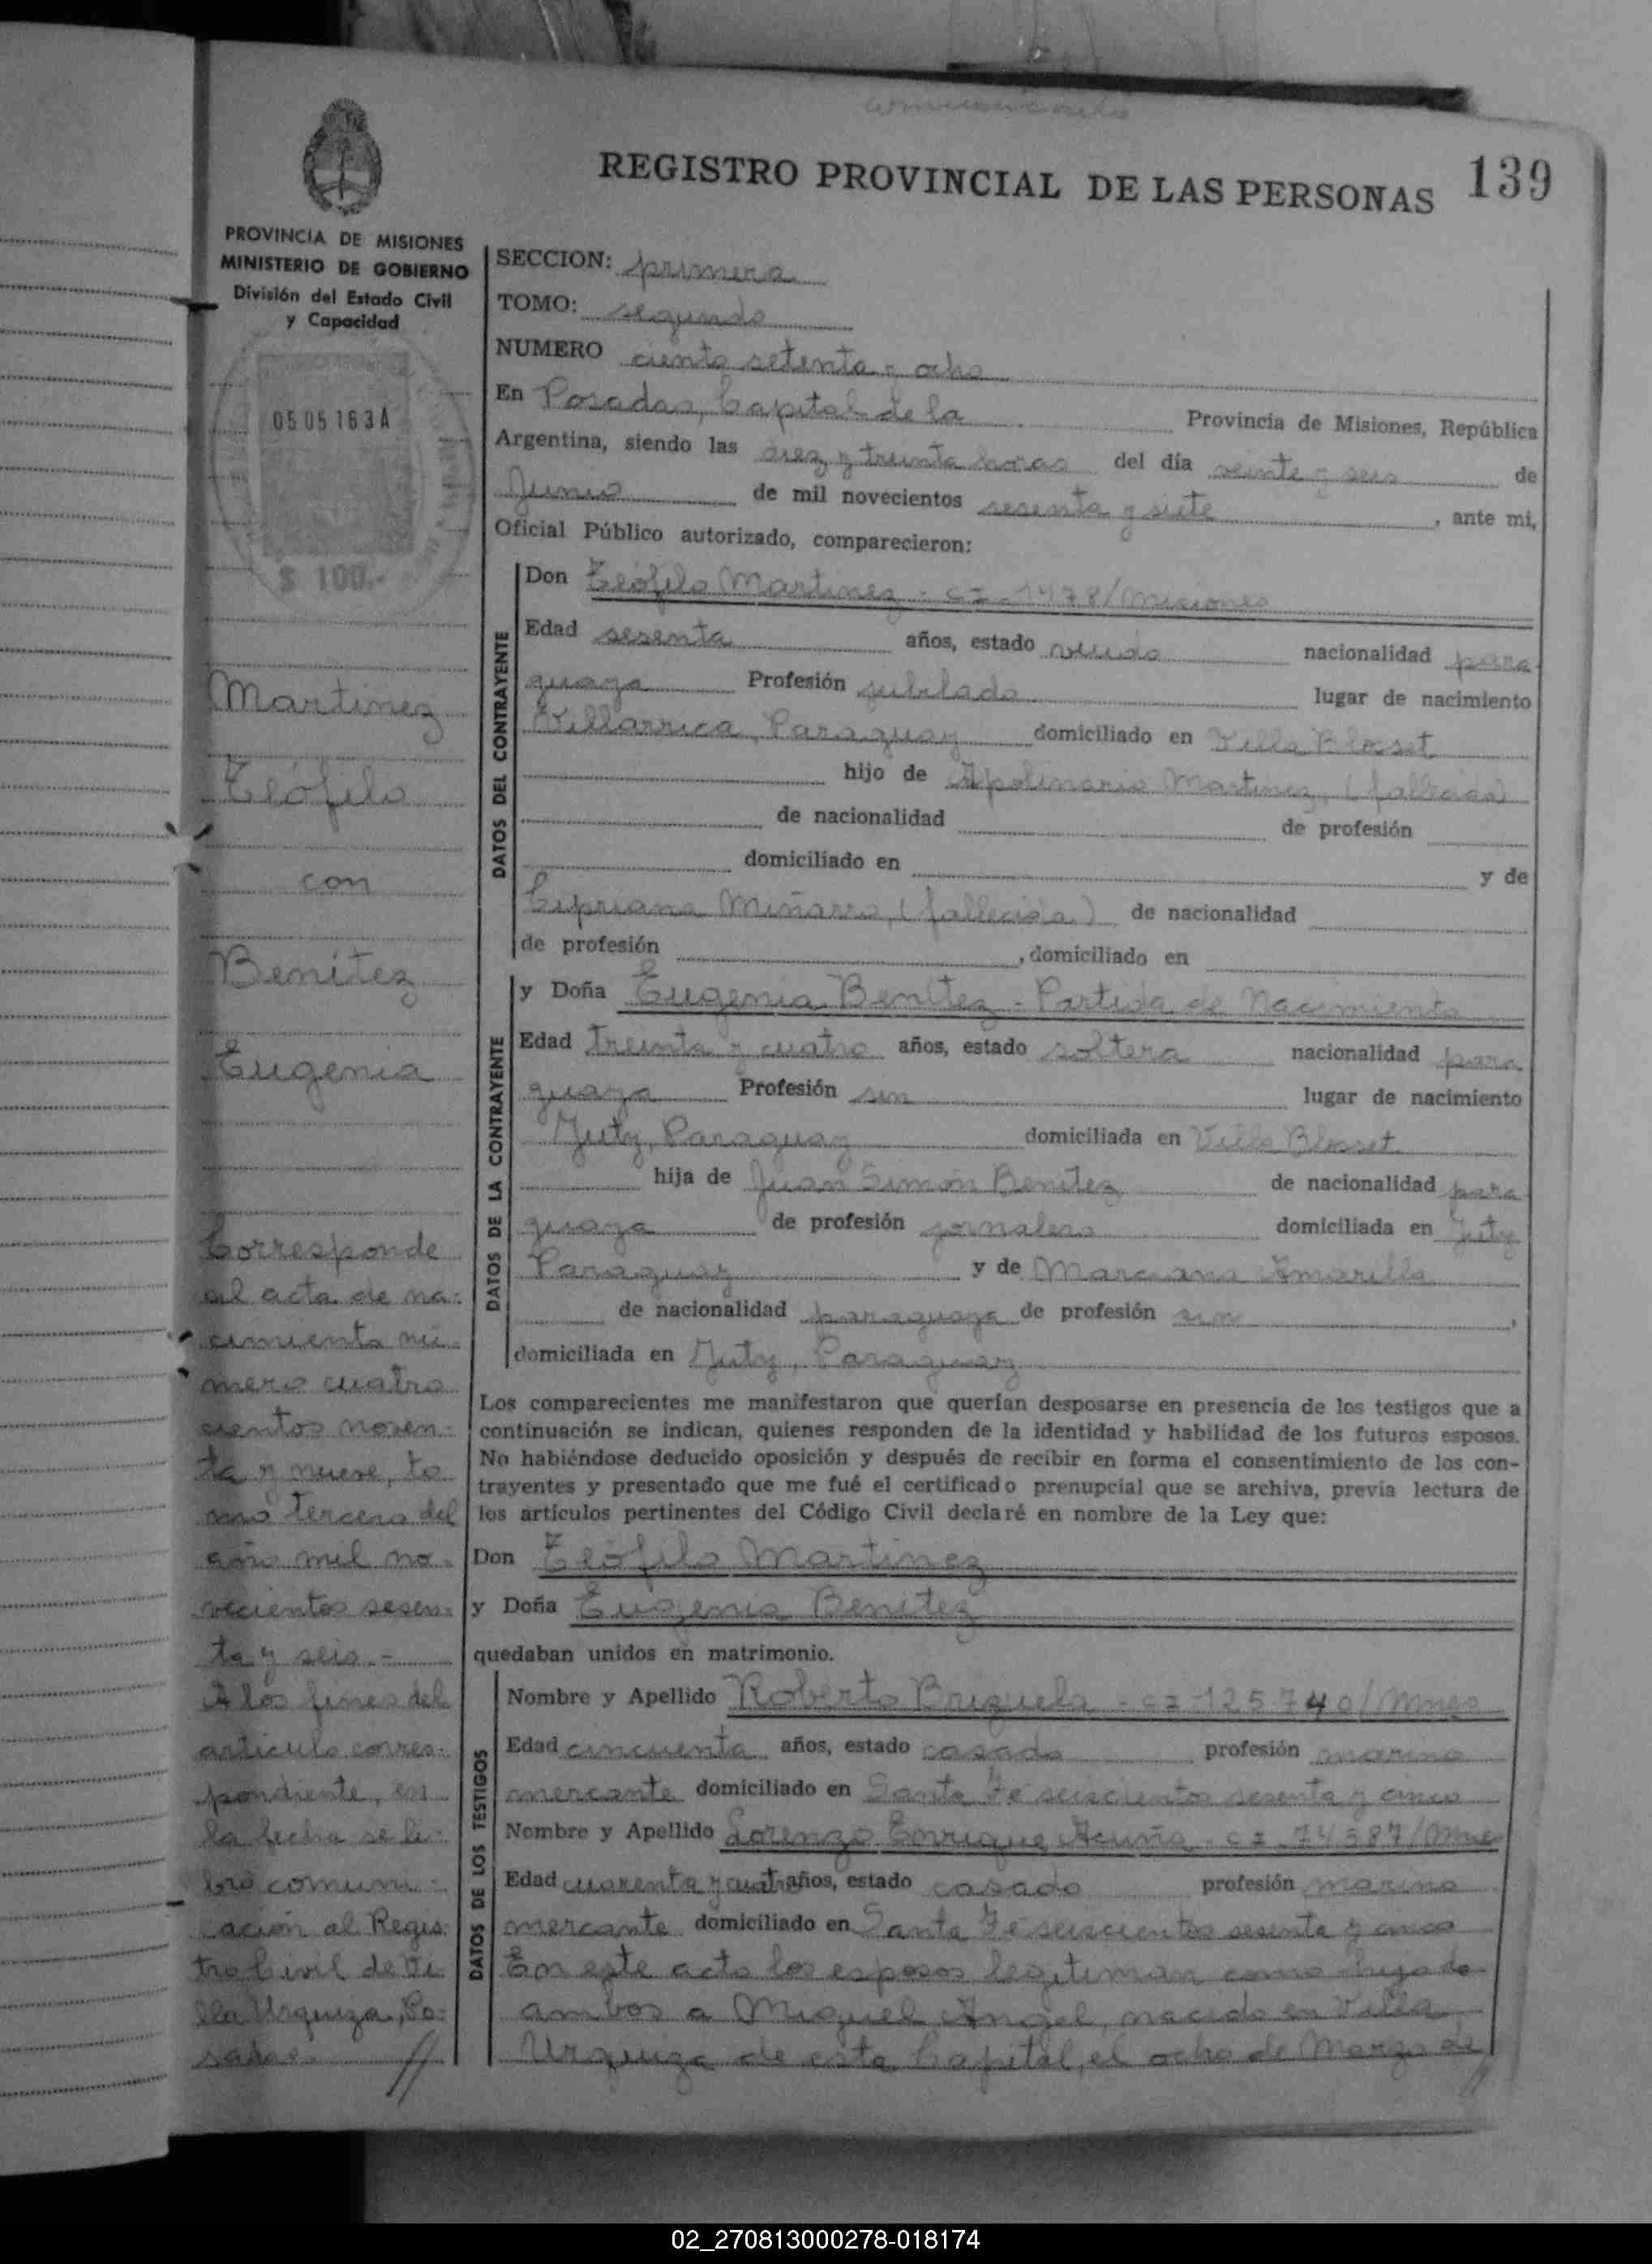 REGISTRO PROVINCIAL DE LAS PERSONAS 139
PROVINCIA DE MISIONES
MINISTERIO DE GOBIERNO
División del Estado Civil
y Capacidad
0505163A
$ 100.-
Martinez
Teófilo
con
Benítez
Eugenia
Corresponde
al acta de na-
cimiento nú-
mero cuatro
cientos noven-
ta y nueve, to
mo tercero del
año mil no-
vecientos sesen-
ta y seis.-
A los fines del
artículo corres-
pondiente, en
la fecha se li-
bró comuni-
cación al Regis-
tro Civil de Vi-
lla Urquiza, Po-
sadas.
SECCION: primera
TOMO: segundo
NUMERO ciento setenta y ocho
En Posadas, Capital de la Provincia de Misiones, República
Argentina, siendo las diez y treinta horas del día veinte y seis de
Junio de mil novecientos sesenta y siete, ante mi,
Oficial Público autorizado, comparecieron:
DATOS DEL CONTRAYENTE
Don Teófilo Martinez - CI. 1478/Misiones
Edad sesenta años, estado viudo nacionalidad para
guaya Profesión jubilado lugar de nacimiento
Villarrica, Paraguay domiciliado en Villa Blosset
hijo de Apolinario Martinez, (fallecido)
de nacionalidad de profesión
domiciliado en y de
Cipriana Miñarro, (fallecida) de nacionalidad
de profesión , domiciliado en
DATOS DE LA CONTRAYENTE
y Doña Eugenia Benítez - Partida de Nacimiento
Edad treinta y cuatro años, estado soltera nacionalidad para
guaya Profesión sin lugar de nacimiento
Yuty, Paraguay domiciliada en Villa Blosset
hija de Juan Simón Benítez de nacionalidad para
guaya de profesión jornalero domiciliada en Yuty
Paraguay y de Marciana Amarilla
de nacionalidad paraguaya de profesión sin ,
domiciliada en Yuty, Paraguay
Los comparecientes me manifestaron que querían desposarse en presencia de los testigos que a
continuación se indican, quienes responden de la identidad y habilidad de los futuros esposos.
No habiéndose deducido oposición y después de recibir en forma el consentimiento de los con-
trayentes y presentado que me fué el certificado prenupcial que se archiva, previa lectura de
los artículos pertinentes del Código Civil declaré en nombre de la Ley que:
Don Teófilo Martinez
y Doña Eugenia Benítez
quedaban unidos en matrimonio.
DATOS DE LOS TESTIGOS
Nombre y Apellido Roberto Brizuela - CI - 125740/Mnes
Edad cincuenta años, estado casado profesión marino
mercante domiciliado en Santa Fé seiscientos sesenta y cinco
Nombre y Apellido Lorenzo Enrique Acuña - CI. 74587/Mnes
Edad cuarenta y cuatro años, estado casado profesión marino
mercante domiciliado en Santa Fé seiscientos sesenta y cinco
En este acto los esposos legitiman como hijo de
ambos a Miguel Angel, nacido en Villa
Urquiza de esta Capital, el ocho de Marzo de
02_270813000278-018174